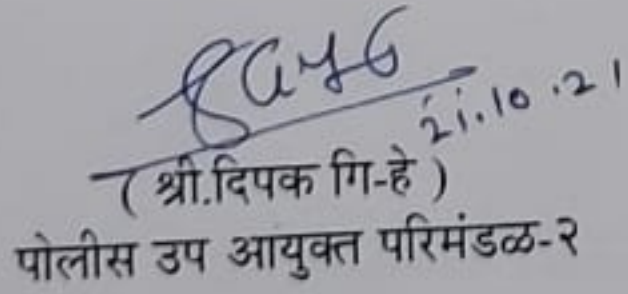 21.10.21
( श्री.दिपक गि-हे )
पोलीस उप आयुक्त परिमंडळ-२